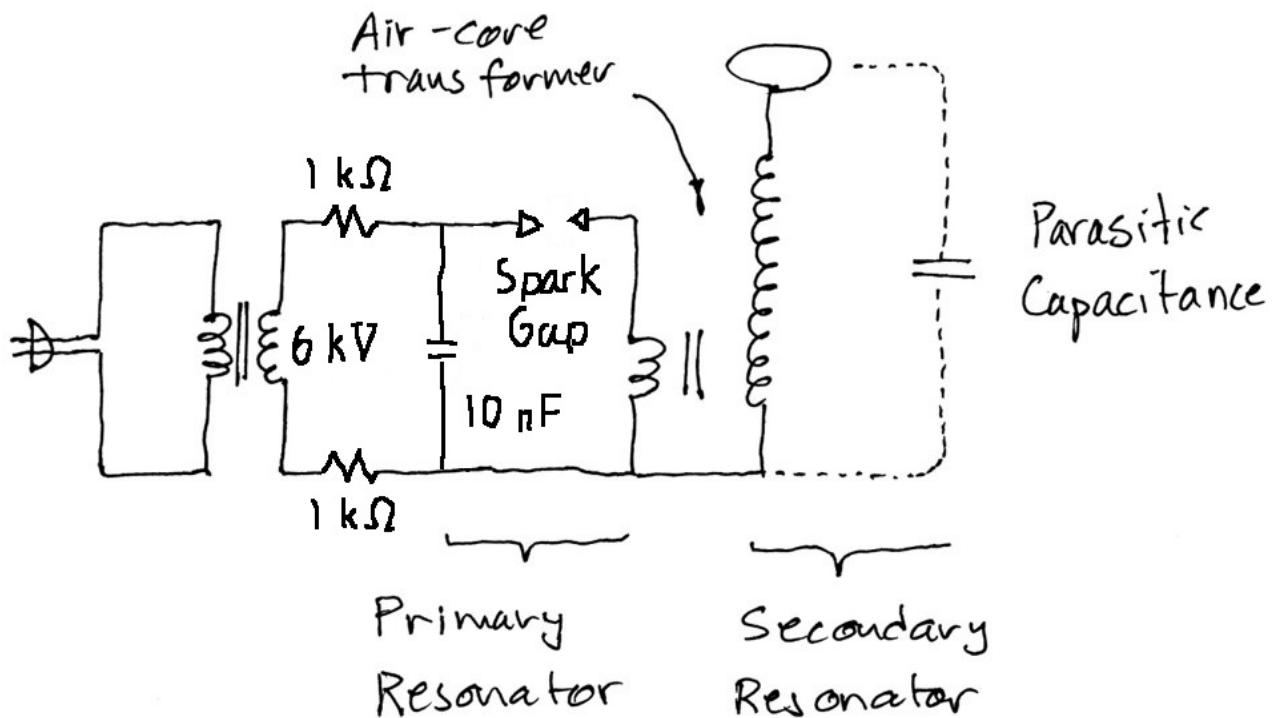 Air-core
transformer
1 kΩ
Spark
Gap
6 kV
10 nF
1 kΩ
Parasitic
Capacitance
Primary
Resonator
Secondary
Resonator